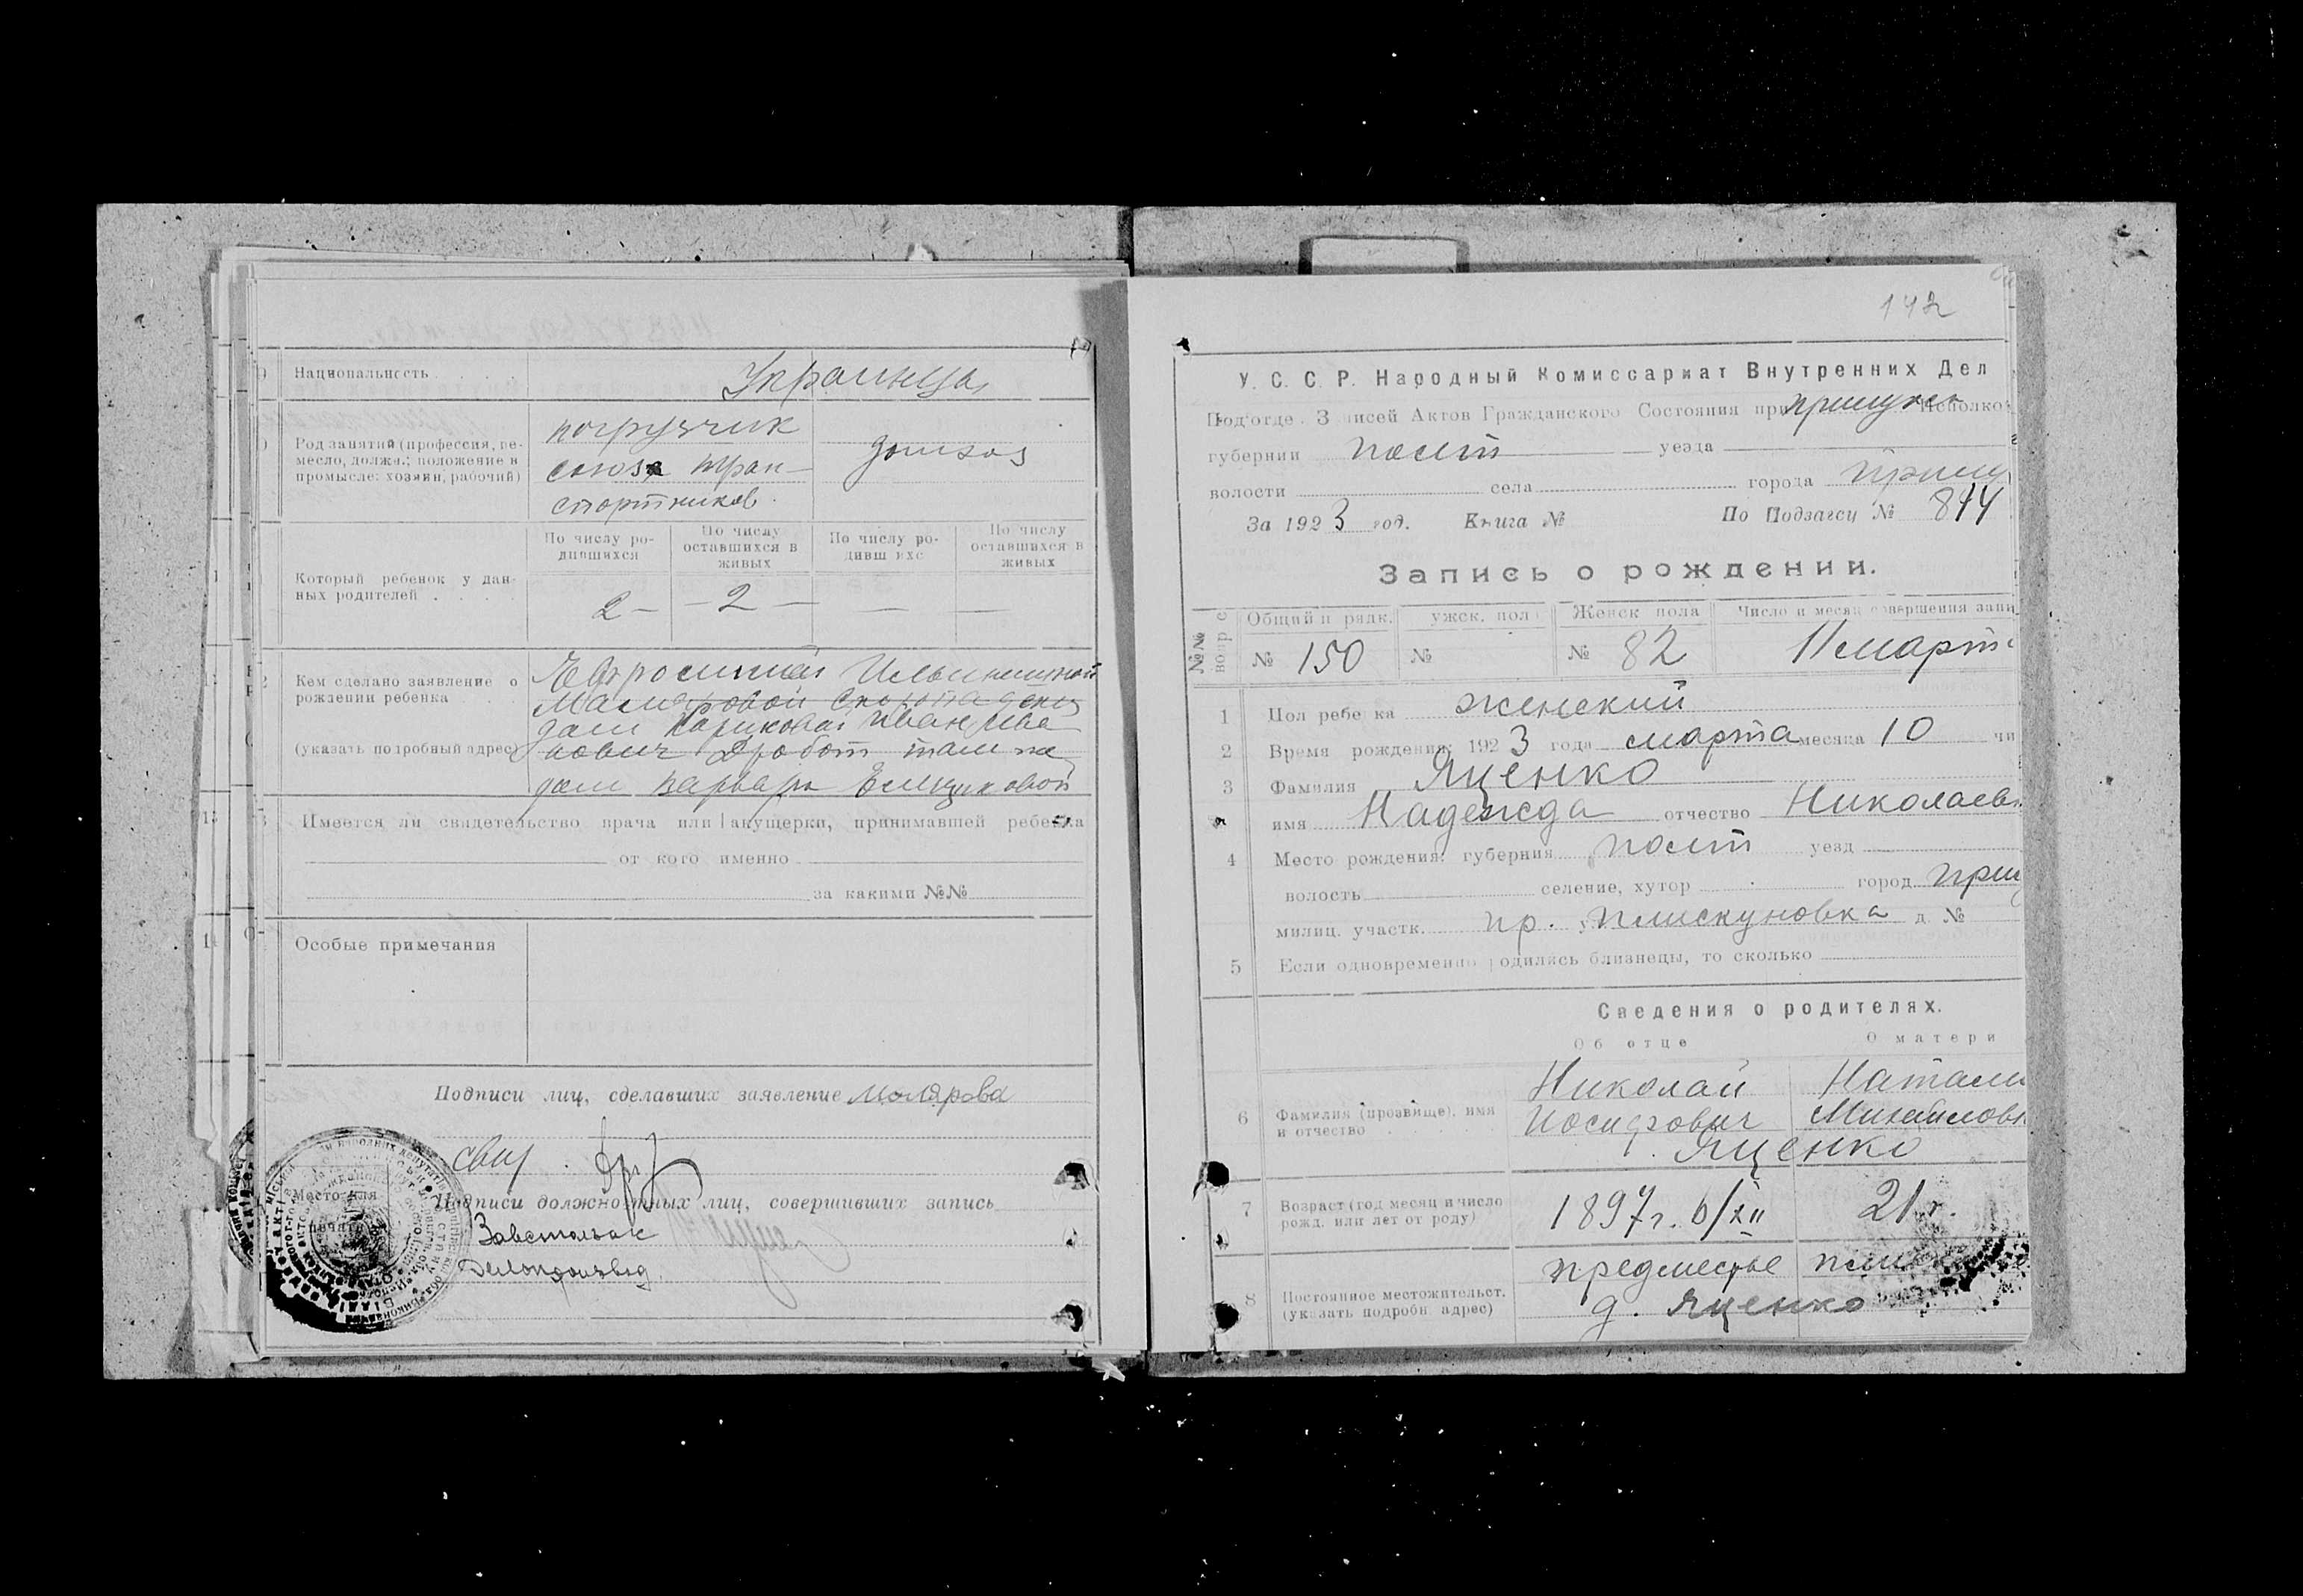 Национальность Украинцы
Род занятий (профессия, ре-
месло, должн.; положение в
промысле: хозяин, рабочий)
погрузчик
союза тран-
спортников.
домхоз
Который ребенок у дан-
ных родителей
По числу ро-
дившихся
По числу
оставшихся в
живых
По числу ро-
дивш ихс
По числу
оставшихся в
живых
2 — — 2 — — —
Кем сделано заявление о
рождении ребенка
(указать подробный адрес)
Ефросиния Ильинишной
дом Иван Ива
нович Дробот там же
дом Варвары
Имеется ли свидетельство врача или акушерки, принимавшей ребенка
от кого именно
за какими №№
Особые примечания
Подписи лиц, сделавших заявление Молярова
свид.
Место для
печати
Подписи должностных лиц, совершивших запись
Завстолом
Делопроизвод.
142
У. С. С. Р. Народный Комиссариат Внутренних Дел
Подотде. З писей Актов Гражданского Состояния при Прилукск Исполко
губернии Полт уезда
волости села города Прилу
За 1923 год. Книга № По Подзагсу № 844
Запись о рождении.
Общий п рядк. ужск. пол Женск пола Число и месяц совершения запи
№ 150 № № 82 11 март
1 Пол ребе ка женский
2 Время рождения: 1923 года марта месяца 10 чи
3 Фамилия Яценко
имя Надежда отчество Николаевн
4 Место рождения: губерния Полт уезд
волость селение, хутор город Прилу
милиц. участк. пр. у Плискуновка д. №
5 Если одновременно родились близнецы, то сколько
Сведения о родителях.
Об отце О матери
6 Фамилия (прозвище), имя
и отчество
Николай Натали
Иосифович Михайловн
Яценко
7 Возраст (год месяц и число
рожд. или лет от роду)
1897 г. 6/XII 21 г.
8 Постоянное местожительст.
(указать подробн. адрес)
предместье
д. Яценко